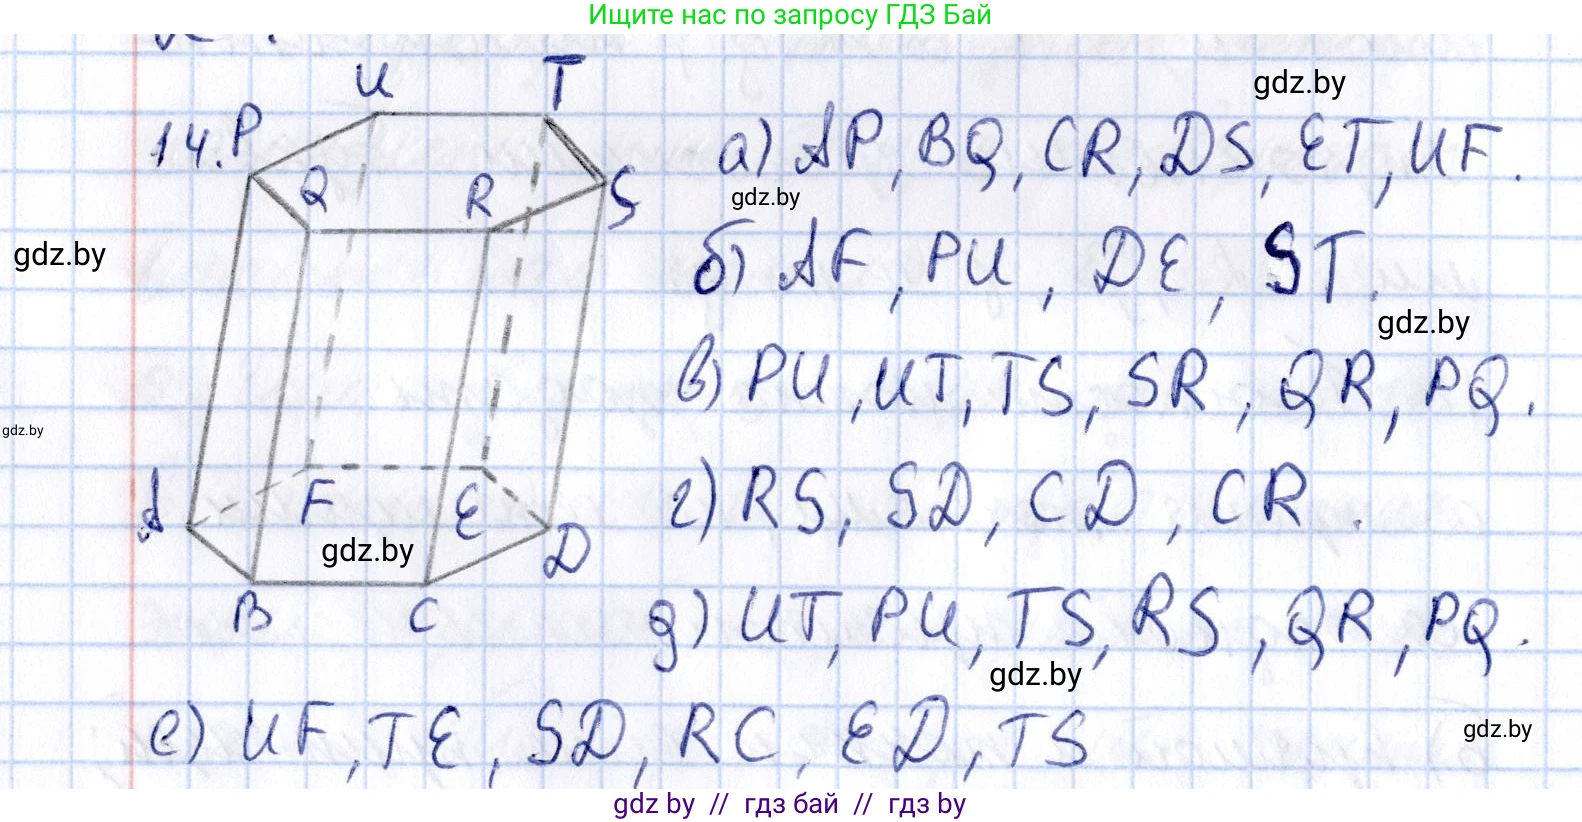 Ищите нас по запросу ГДЗ Бай
14.
U T
P Q R S
A F E D
B C
а) AP, BQ, CR, DS, ET, UF.
б) AF, PU, DE, ST.
в) PU, UT, TS, SR, QR, PQ.
г) RS, SD, CD, CR.
д) UT, PU, TS, RS, QR, PQ.
е) UF, TE, SD, RC, ED, TS
gdz.by
gdz.by
gdz.by
gdz.by
gdz.by
gdz.by
gdz.by
gdz.by
gdz by // гдз бай // гдз by